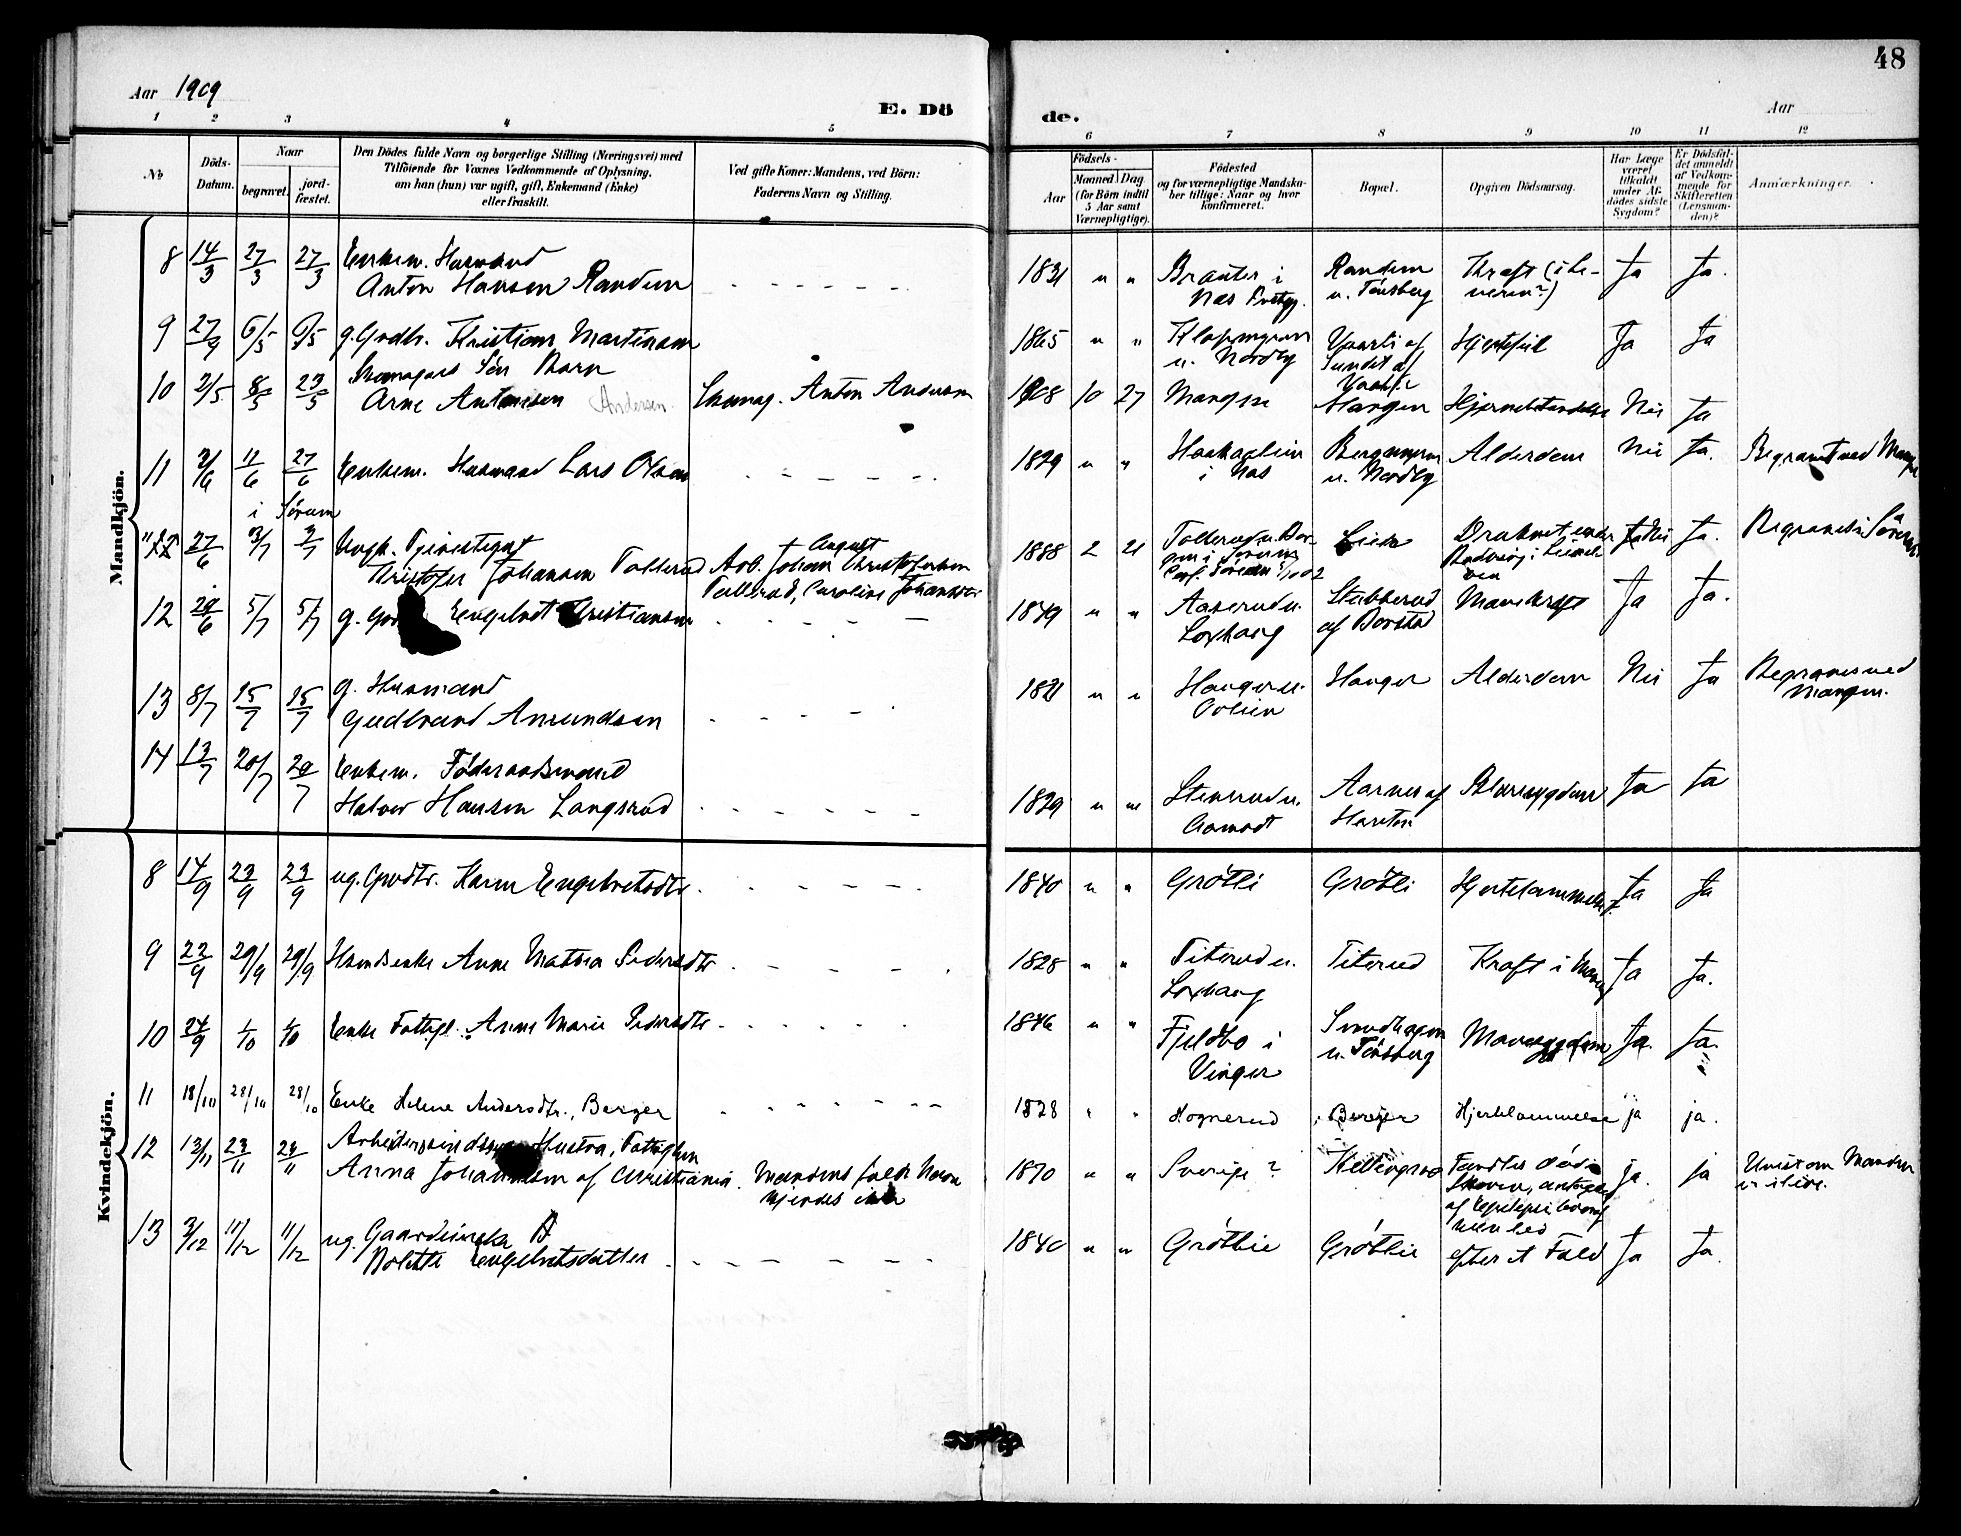 48
Aar 1909
E. Dö de.
Aar
1 2 3 4 5 6 7 8 9 10 11 12
No
Döds-Datum.
Naar
begravet.
jord-fæstet.
Den Dödes fulde Navn og borgerlige Stilling (Næringsvei) med
Tilföiende for Voxnes Vedkommende af Oplysning,
om han (hun) var ugift, gift, Enkemand (Enke)
eller fraskilt.
Ved gifte Koner: Mandens, ved Börn:
Faderens Navn og Stilling.
Födsels-
Aar
Maaned Dag
(for Börn indtil
5 Aar samt
Værnepligtige).
Födested
og for værnepligtige Mandska-
ber tillige: Naar og hvor
konfirmeret.
Bopæl.
Opgiven Dödsaarsag.
Har Læge
været
tilkaldt
under Af-
dödes sidste
Sygdom?
Er Dödsfal-
det anmeldt
af Vedkom-
mende for
Skifteretten
(Lensman-
den)?
Anmærkninger.
Mandkjön.
8 14/3 27/3 27/3 Enkem. Husmand
Anton Hansen Randem
1831 " " Branter i
Næs Prstgj.
Randem
u. Tönsberg
Kræft (i Le-
veren?)
Ja Ja.
9 5/5 5/5 g. Gndbr. Kristian Martinsen
1865 " "
u. Nordby
Hjertefeil
Ja Ja
10 2/5 8/5 23/5 Skomagers Sön Barn
Arne Antonsen Andersen.
Skomag. Anton Andersen
1908 10 27 Mangen Mangen Hjernebetændelse Nei Ja
11 2/6 11/6 27/6 Enkem. Husmand Lars Olsen
1829 " "
i Næs
u. Nordby
Alderdom Nei Ja. Begravet ved Mangen
i Sörum
27/6 3/7 3/7 Ungk. Tjenestegut
Kristofer Johansen Tollerud
Arb. Johan August Christofersen
Tollerud, Caroline Johansen
1888 2 21 Tollerud u.
i Sörum
Conf. Sörum 1902
Druknet under
Badning i
Nei Ja. Begravet i Sörum
12 29/6 5/7 5/7 g. Engebret Kristiansen
1849 " " Aaserud u.
Loxhaug
Stubberud
af Borstad
Mavekræft Ja Ja.
13 8/7 15/7 15/7 g. Husmand
Gudbrand Amundsen
1821 " " Hanger u.
Hanger Alderdom Nei Ja Begravet ved
Mangen.
14 13/7 20/7 20/7 Enkem. Föderaadsmand
Halvor Hansen Langsrud
1829 " " Stenerud u.
Aamodt
Aarnes af
Blæresygdom Ja Ja
Kvindekjön.
8 14/9 23/9 23/9 ug. Grdtr. Karen Engebretsdtr.
1840 " " Gröttli Gröttli Hjertelammelse Ja Ja
9 22/9 29/9 29/9 Husmdsenke Anne Mathea Pedersdtr
1828 " " Titerud u.
Loxhaug
Titerud Kræft i Maven Ja Ja.
10 24/9 1/10 1/10 Enke Fattigl. Anne Marie Pedersdtr.
1846 " " Fjeldbo i
Vinger
Svendhagen
u. Tönsberg
Mavesygdom Ja. Ja.
11 18/10 28/10 28/10 Enke Helene Andersdtr., Berger
1828 " " Kognerud Berger Hjertelammelse ja ja.
12 13/11 23/11 23/11 Hustru, Fattiglem
Anna Johannesen af Christiania.
Mandens fulde Navn
kjendes ikke
1870 " " Sverige?
Fundtes död i
Skoven, antagelig
af Epilepsi hvoraf
hun led
ja. ja Uvist om Manden
er i live.
13 3/12 11/12 11/12 ug. Gaardeierske
Bolette Engebretsdatter
1840 " " Gröttlie Gröttlie efter et Fald Ja Ja.